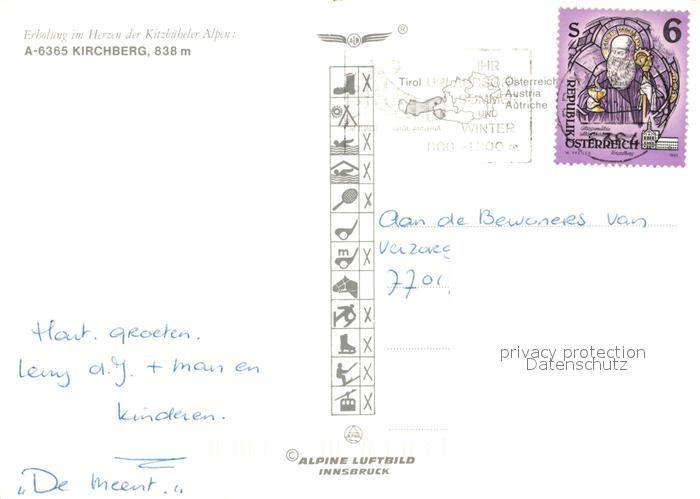 Erholung im Herzen der Kitzbüheler Alpen:
A-6365 KIRCHBERG, 838 m
Tirol
Österreich
Austria
Autriche
IHR
UND
WINTER
S 6
REPUBLIK
ÖSTERREICH
Aan de Bewoners van
Verzorg
7701
Hart. groeten.
Leny d.J. + man en
kinderen.
„De Meent.„
m
privacy protection
Datenschutz
© ALPINE LUFTBILD
INNSBRUCK